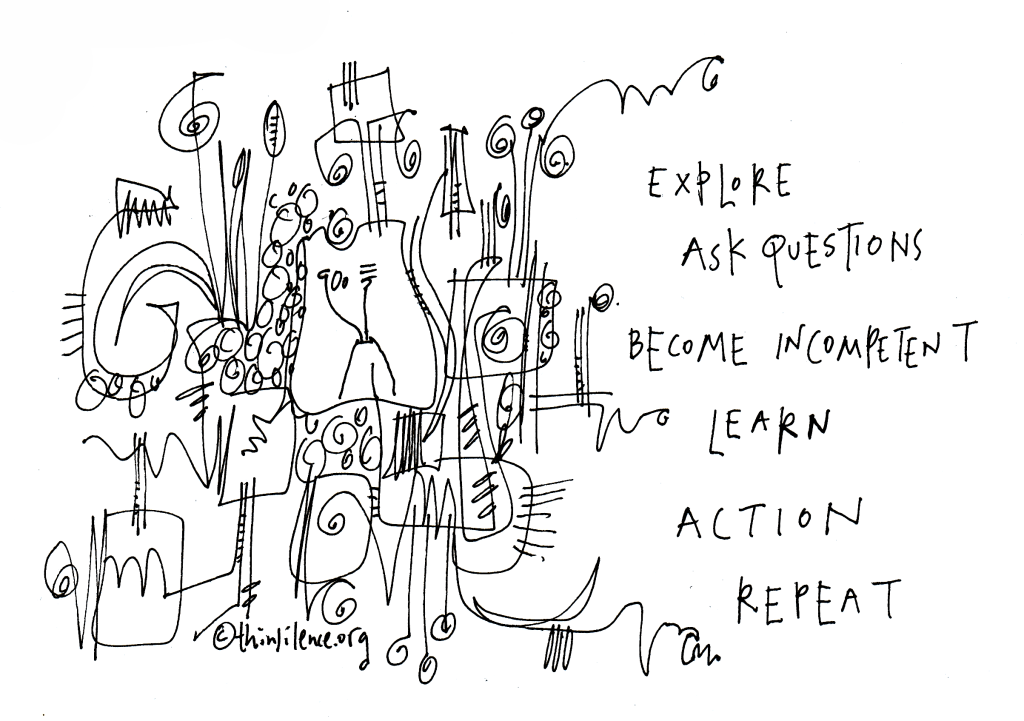 EXPLORE
ASK QUESTIONS
BECOME INCOMPETENT
LEARN
ACTION
REPEAT
©thinsilence.org